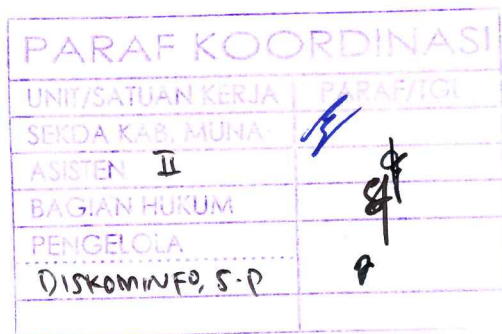 PARAF KOORDINASI
UNIT/SATUAN KERJA PARAF/TGL
SEKDA KAB. MUNA
ASISTEN II
BAGIAN HUKUM
PENGELOLA
DISKOMINFO, S.P